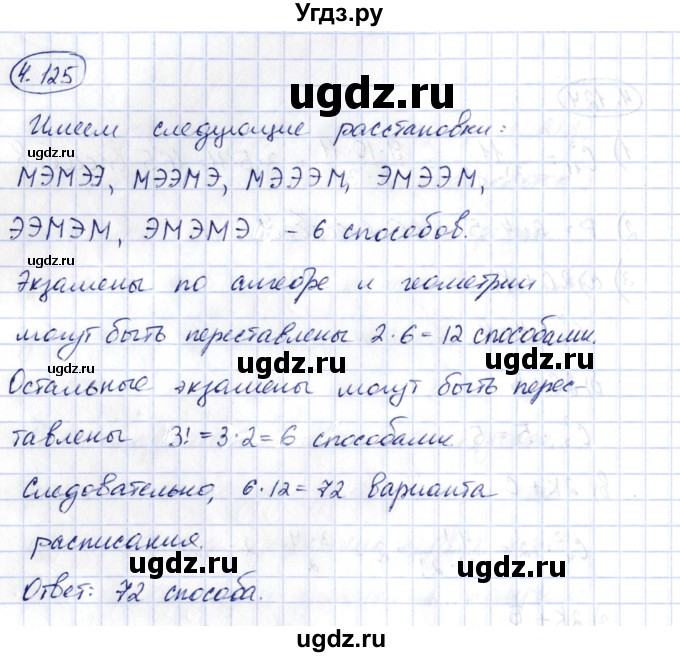 Угдз.ру
4.125
ugdz.ru
Имеем следующие расстановки:
ugdz.ru
ugdz.ru
МЭМЭЭ, МЭЭМЭ, МЭЭЭМ, ЭМЭЭМ,
ЭЭМЭМ, ЭМЭМЭ - 6 способов.
ugdz.ru
Экзамены по алгебре и геометрии
могут быть переставлены 2·6=12 способами.
ugdz.ru
ugdz.ru
Остальные экзамены могут быть перес-
тавлены 3!=3·2=6 способами.
ugdz.ru
ugdz.ru
Следовательно, 6·12=72 варианта
расписания.
ugdz.ru
ugdz.ru
Ответ: 72 способа.
ugdz.ru
ugdz.ru